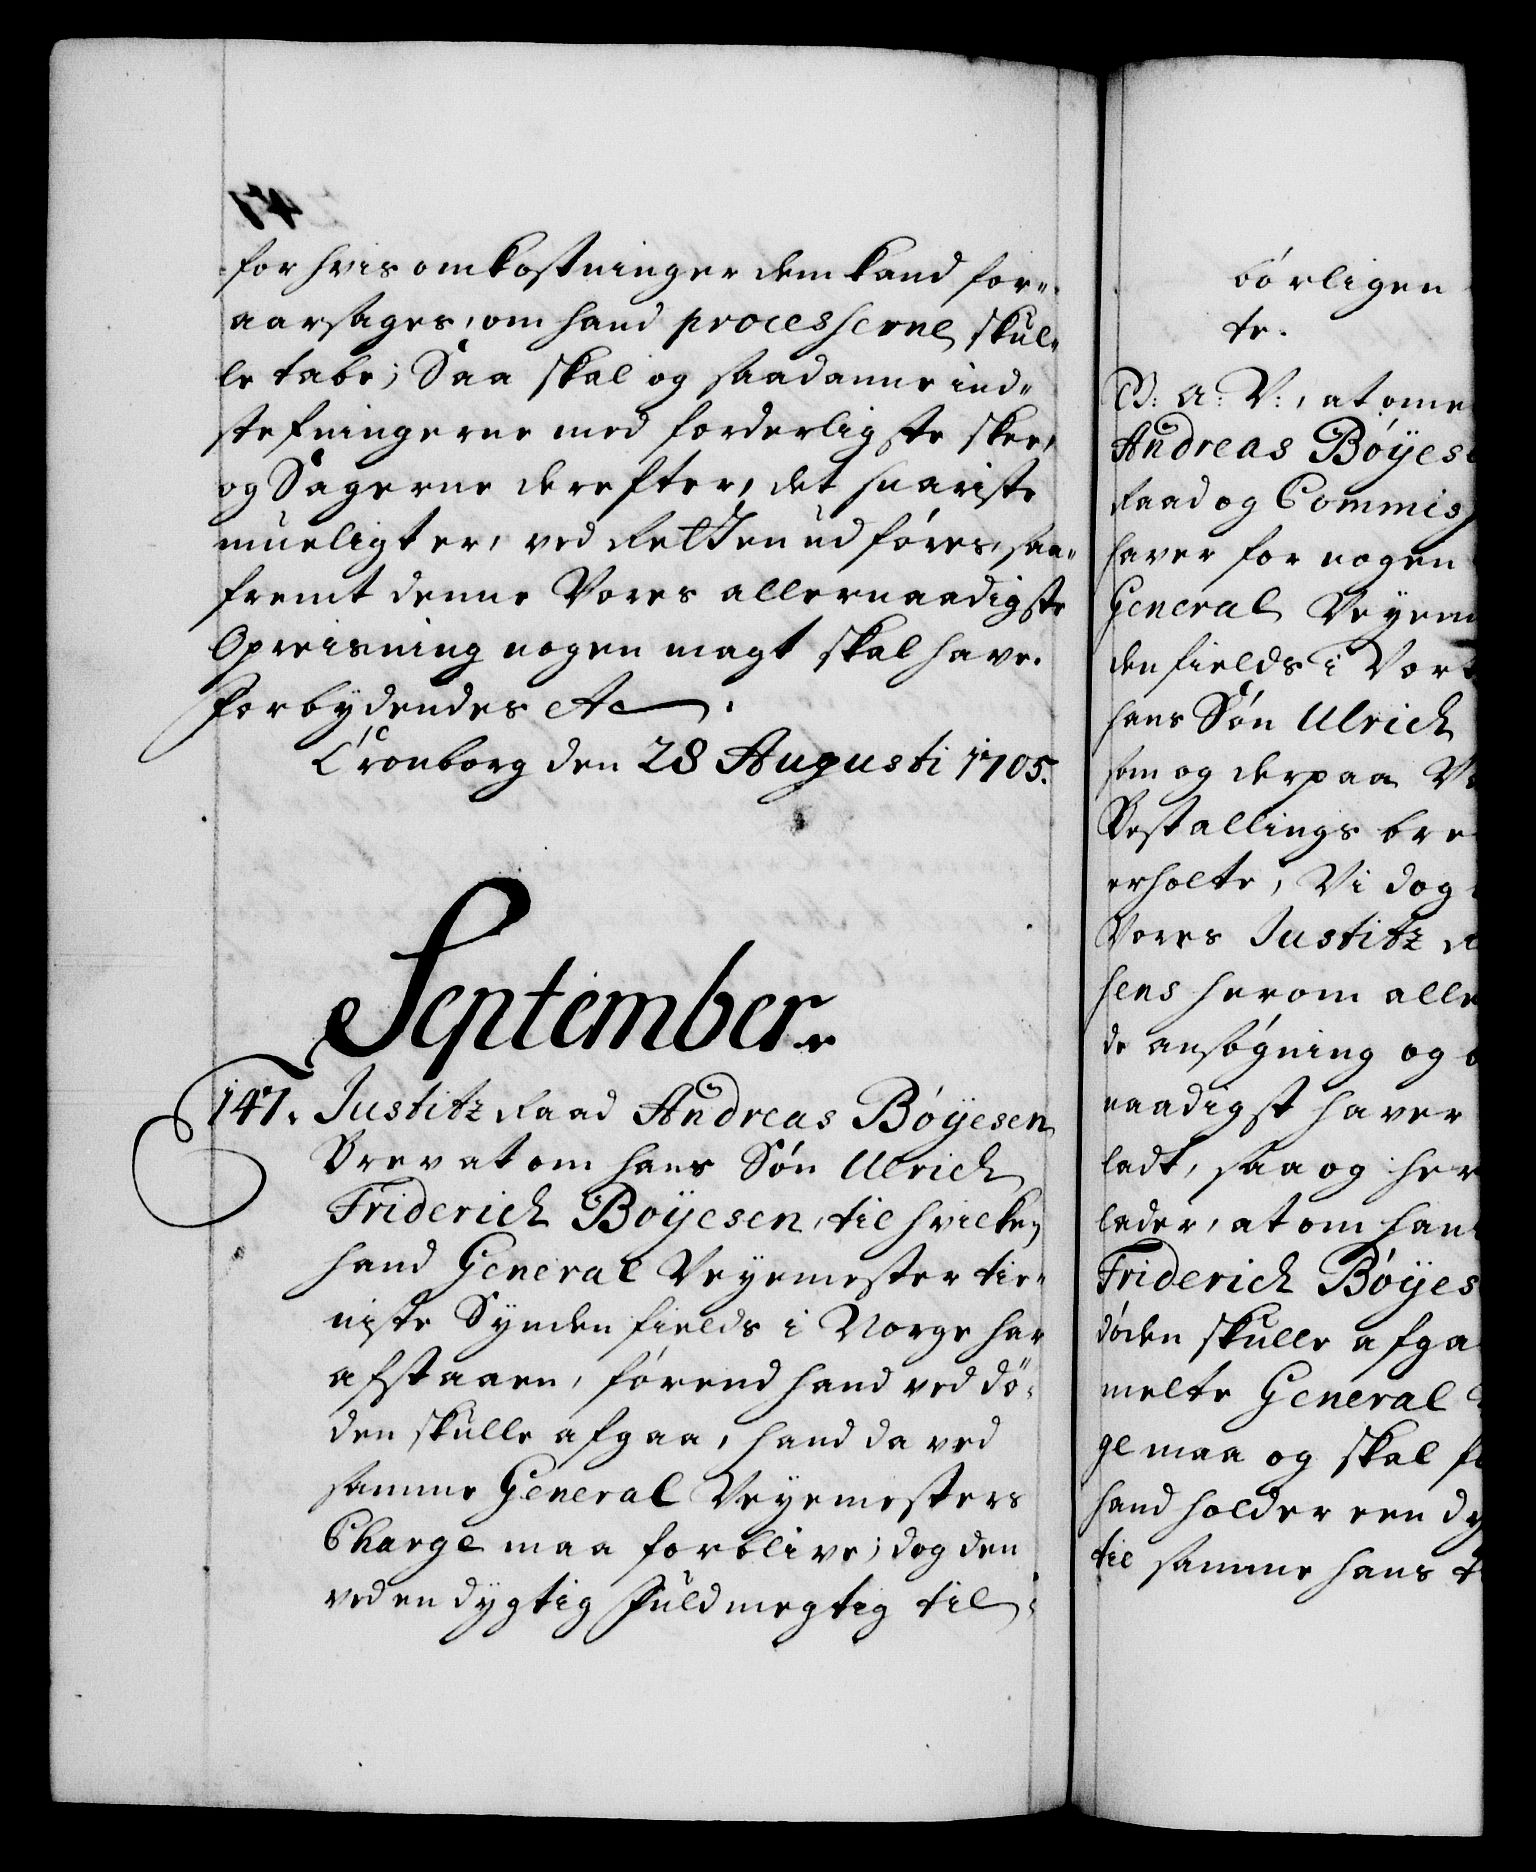 for hvis omkostninger dem kand for„
aarsages, om hand processerne skul„
le tabe; Saa skal og saadanne ind„
stefningerne med forderligste skee,
og Sagerne derefter, det snariste
mueligt er, ved Retten udføres, saa„
fremt denne Vores allernaadigste
Opreisning nogen magt skal have.
Forbydendes etc.
Cronborg den 28 Augusti 1705.
September.
147. Justitz Raad Andreas Böÿesen
Brev at om hans Sön Ulrich
Friderich Böÿesen, til hvilken
hand General Veyemester tie„
niste Synden fields i Norge har
afstaaen, förend hand ved dö„
den skulle afgaa, hand da ved
samme General Veyemesters
Charge maa forblive; dog den
ved en dygtig Fuldmegtig til
börligen
te.
G: A: V:, at om
Andreas Böÿes
Raad og Commis
haver for nogen
General Veyem
den fields i Vort
hans Sön Ulrich
som og derpaa
Bestallings bre
erholte, Vi dog
Vores Justitz
sens herom alle
de ansögning og
naadigst haver
ladt, saa og her
lader, at om han
Friderich Böÿes
döden skulle afga
melte General
ge maa og skal
hand holder een dy
til samme hans